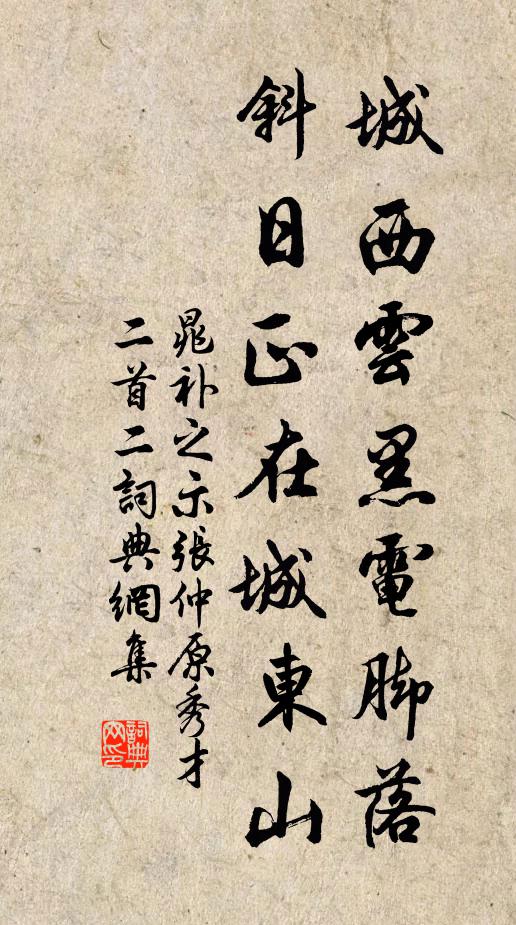 城西雲黑電脚落
斜日正在城東山
晁补之示張仲原秀才
二首二詞典網集
詞典网印